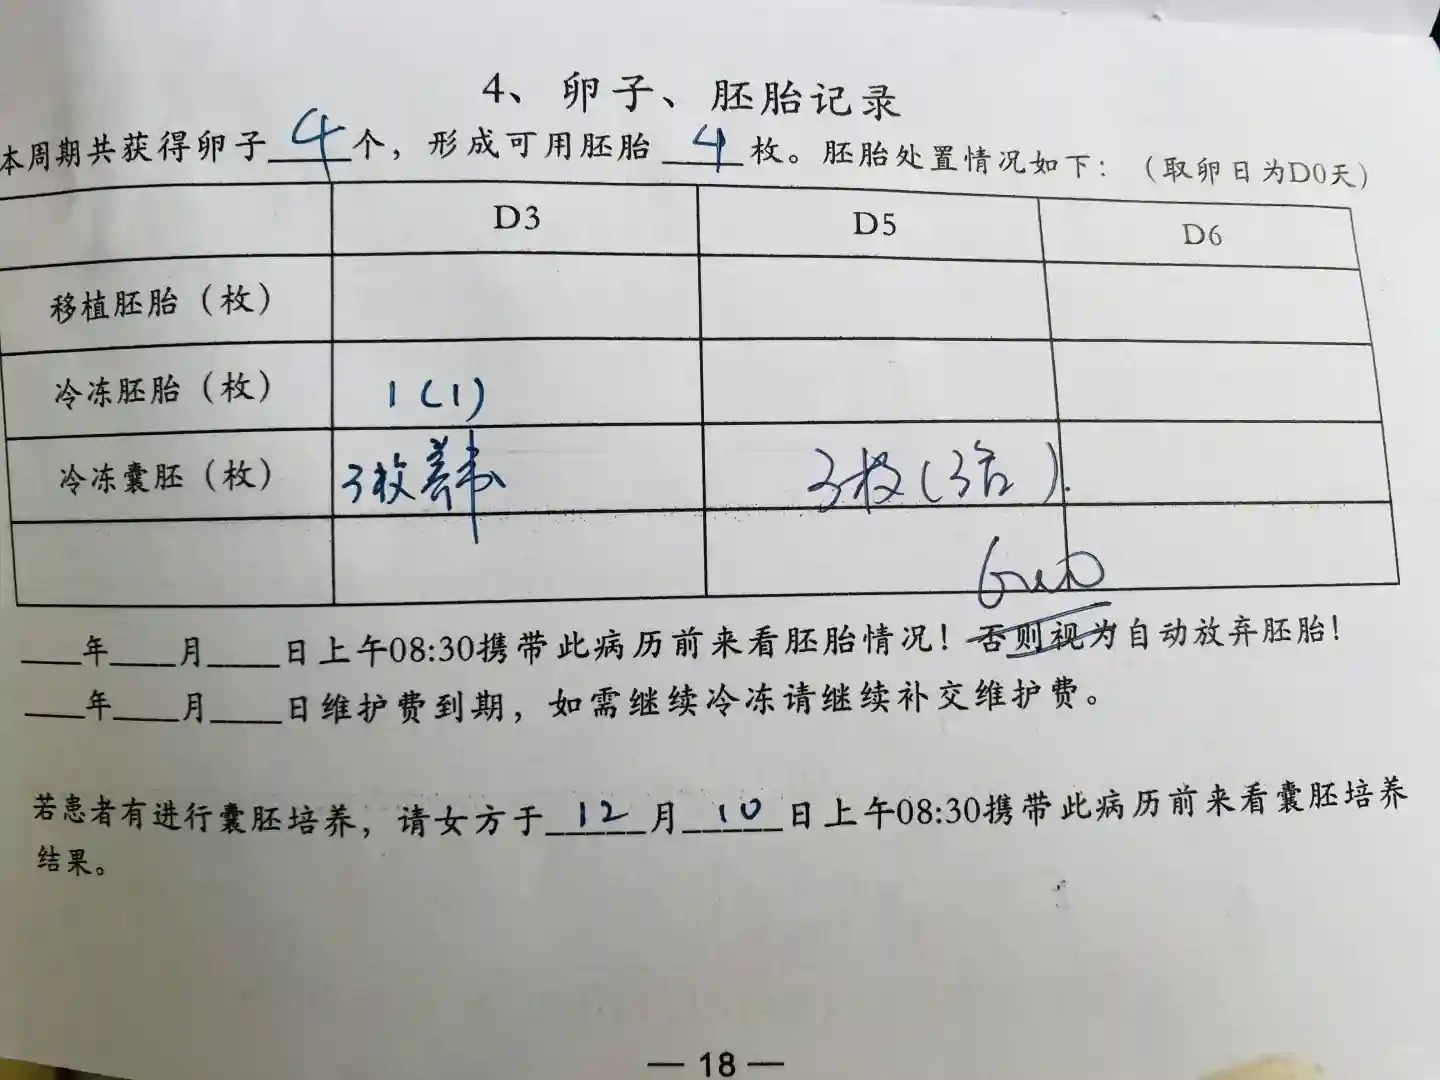 4、卵子、胚胎记录
本周期共获得卵子 4 个，形成可用胚胎 4 枚。胚胎处置情况如下：（取卵日为D0天）
D3 D5 D6
移植胚胎（枚）
冷冻胚胎（枚） 1(1)
冷冻囊胚（枚） 3枚养囊 3枚(3管).
___年___月___日上午08:30携带此病历前来看胚胎情况！否则视为自动放弃胚胎！
___年___月___日维护费到期，如需继续冷冻请继续补交维护费。
若患者有进行囊胚培养，请女方于 12 月 10 日上午08:30携带此病历前来看囊胚培养
结果。
— 18 —